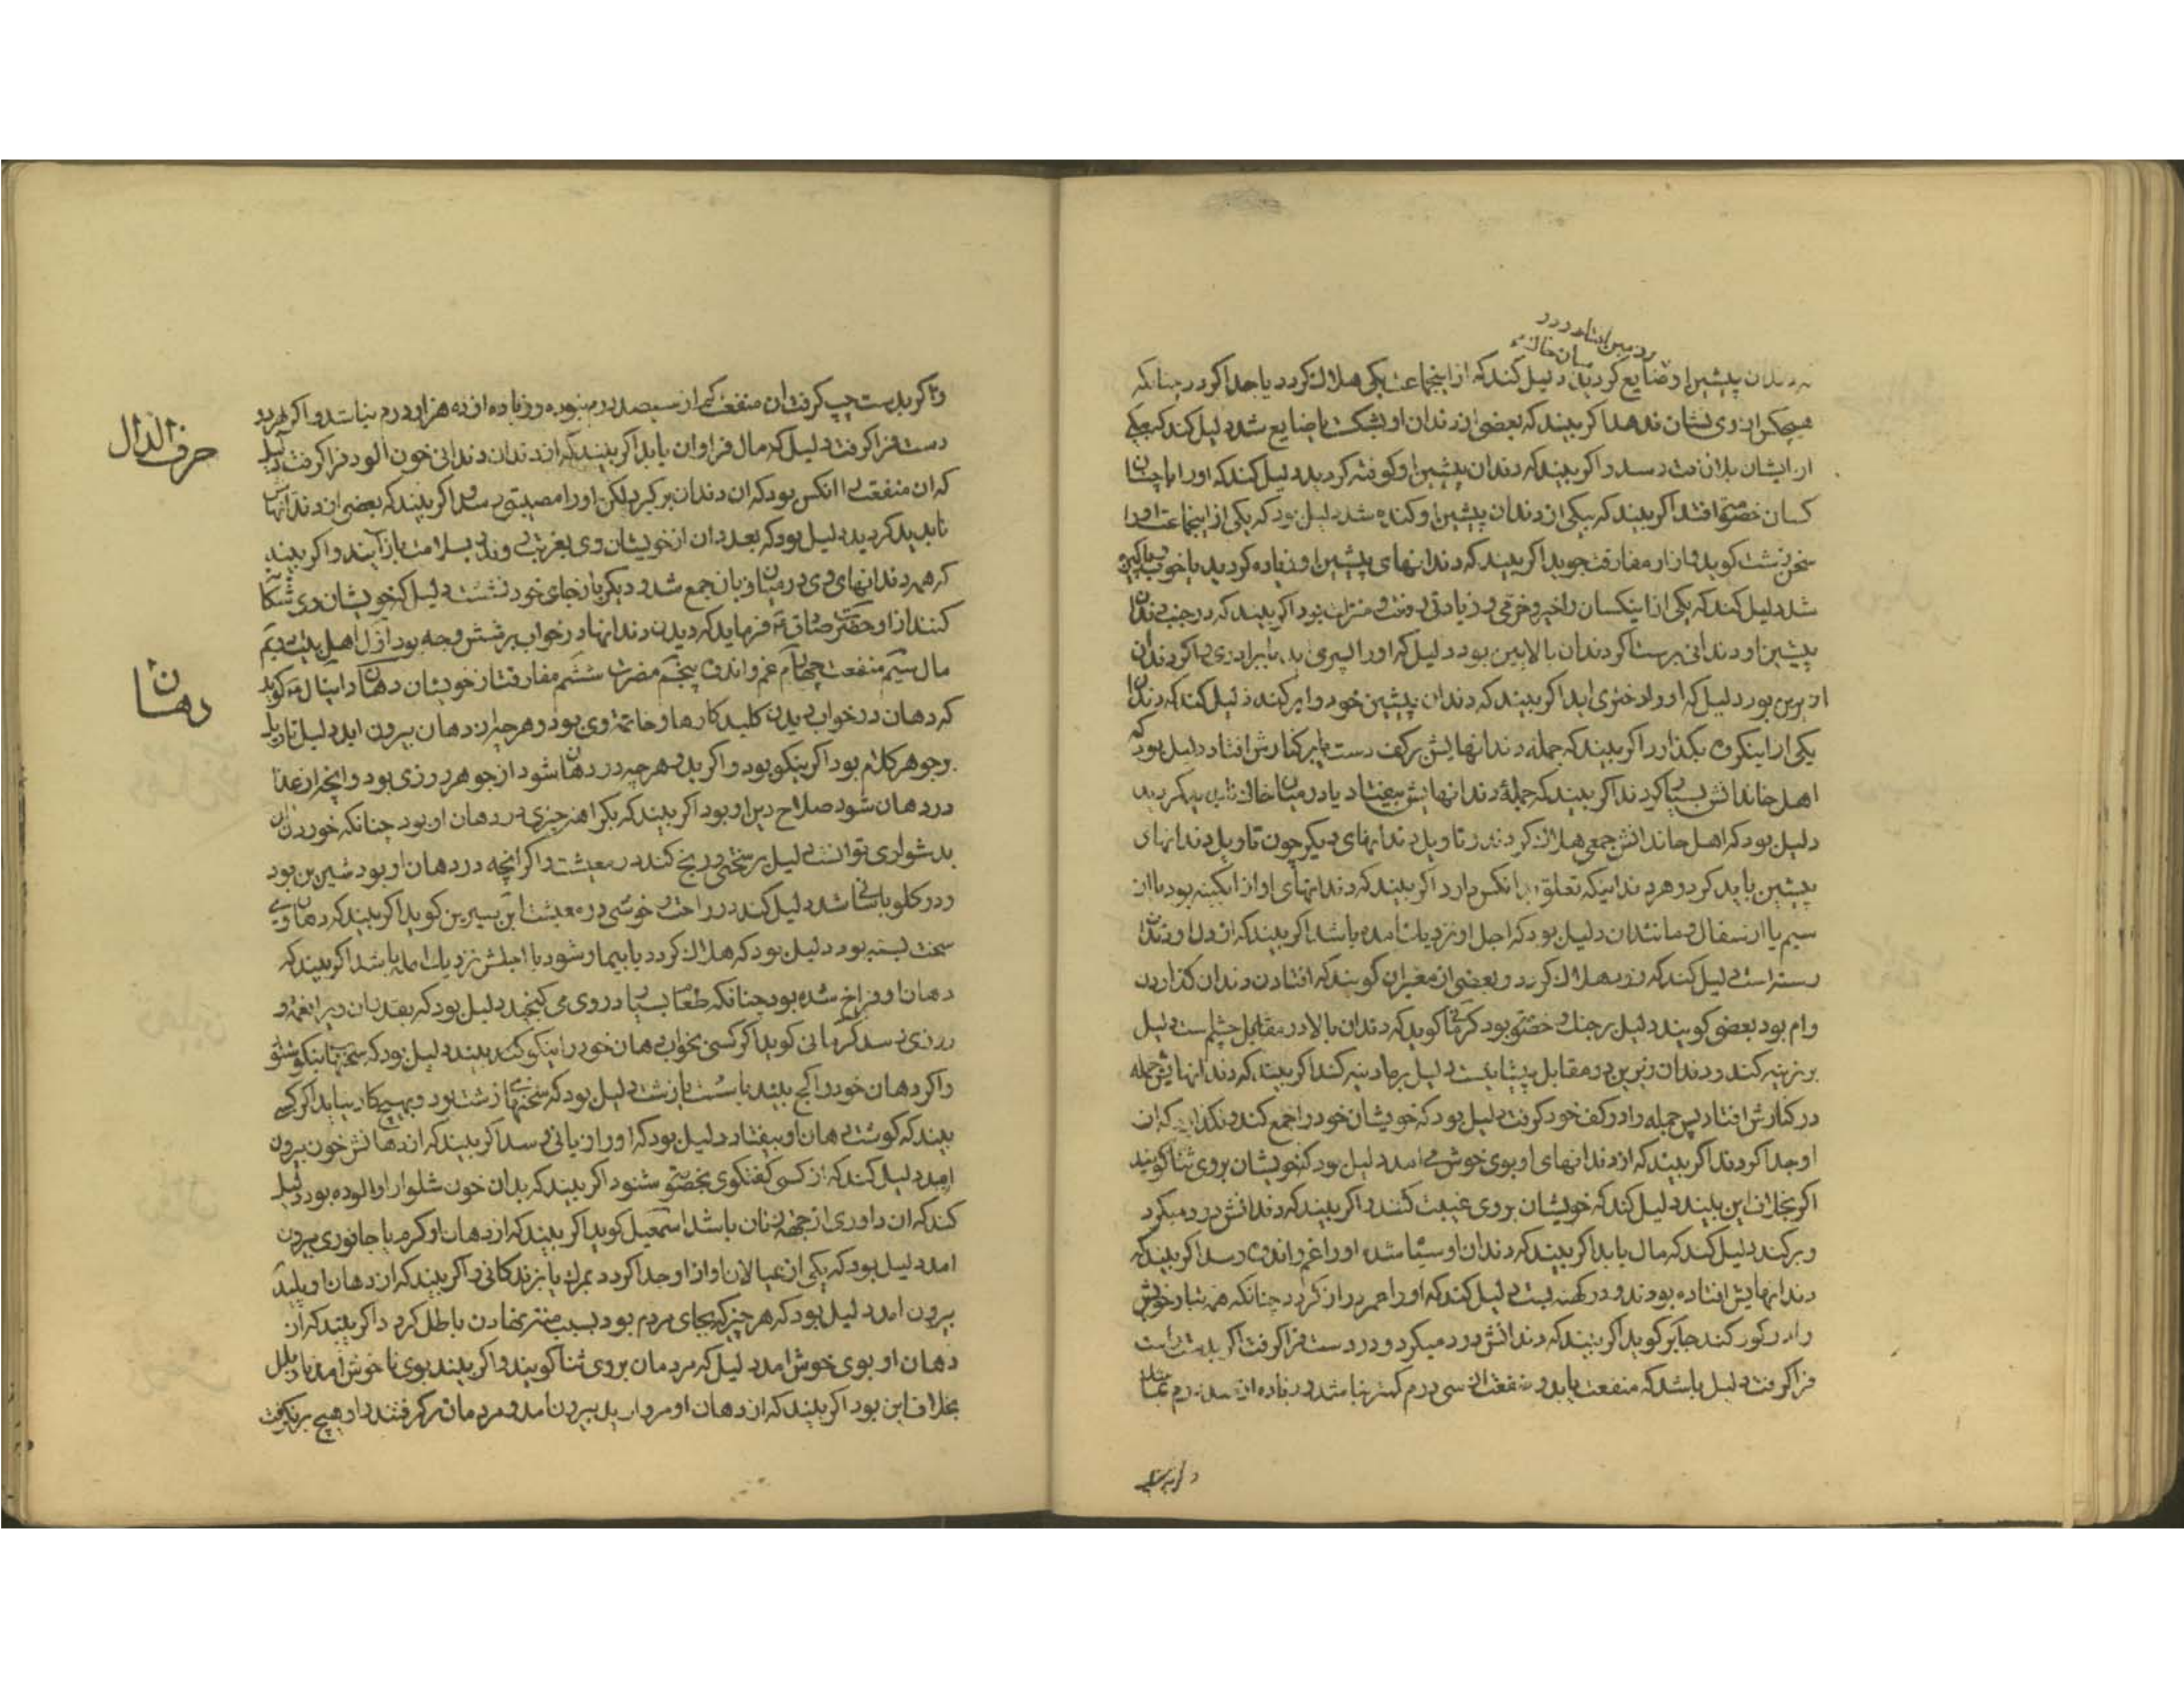 بر زمین افتاد و در
میان خاک
دندان پیشین او ضایع کردید دلیل کند که از اینجماعت یکی هلاک کردد یا جدا کردد چنانکه
هیچکس از وی نشان ندهد اکر بیند که بعضی از دندان او بشکست یا ضایع شد دلیل کند که یکی
از ایشان را افت رسد و اکر بیند که دندان پیشین او کوفته کردید دلیل کند که او را با چنان
کسان خصومت افتد اکر بیند که یکی از دندان پیشین او کنده شد دلیل بود که یکی از اینجماعت او را
سخن زشت کوید و از او مفارقت جوید اکر بیند که دندانهای پیشین او زیاده کردید یا خوب و پاکیزه
شد دلیل کند که یکی از اینکسان را خیر و خرمی و زیادتی و منزلت بود اکر بیند که در جنب دندان
پیشین او دندانی برست اکر دندان بالایین بود دلیل که او را پسری اید یا برادری و اکر دندان
زیرین بود دلیل که او را دختری اید اکر بیند که دندان پیشین خود را بر کند دلیل کند که
یکی از اینکروه اکر بیند که جمله دندانهایش بر کف دست یا بر کنارش افتاد دلیل بود که
اهل خاندانش بسیار کردند اکر بیند که جمله دندانهایش بیفتاد یا در میان خاک ناپدید کردید
دلیل بود که اهل خاندانش جمعی هلاک کردند و تاویل دندانهای دیکر چون تاویل دندانهای
پیشین باید کرد و هر دندانیکه تعلق بدانکس دارد اکر بیند که دندانهای او از ابکینه بود یا از
سیم یا از سفال و مانند ان دلیل بود که اجل او نزدیک امده باشد اکر بیند که از دل او دندان
رسته است دلیل کند که زود هلاک کردد و بعضی از معبران کویند که افتادن دندان کذاردن
وام بود بعضی کویند دلیل بر جنک و خصومت بود کرمانی کوید که دندان بالا در مقابل چشم است دلیل
بر نرینه کند و دندان زیرین در مقابل دلیل بر مادینه کند اکر بیند که دندانهایش جمله
در کنارش افتاد پس جمله را در کف خود کرفت دلیل بود که خویشان خود را جمع کند و نکذارد که از
او جدا کردند اکر بیند که از دندانهای او بوی خوش می امد دلیل بود که خویشان بر وی ثنا کویند
اکر بخلاف این بیند دلیل کند که خویشان بر وی غیبت کنند و اکر بیند که دندانش درد میکرد
و بر کند دلیل کند که مال یابد اکر بیند که دندان او سیاه شد او را غم و اندوه رسد اکر بیند که
دندانهایش افتاده بودند و در کهنه بست دلیل کند که او را عمر دراز کردد چنانکه همه تبار خویش
را در کور کند جابر کوید اکر بیند که دندانش درد میکرد و در دست فرا کرفت اکر بدست راست
فرا کرفت دلیل باشد که منفعت یابد و منفعت از سی درم کمتر نباشد و زیاده از سیصد درم نباشد
و اکر بدست
و اکر بدست چپ کرفت ان منفعت کم از سیصد درم نبود و زیاده از ده هزار درم نباشد و اکر هر دو
دست فرا کرفت دلیل که مال فراوان یابد اکر بیند که از دندان دندانی خون الود فرا کرفت دلیل
که ان منفعت انکس بود که ان دندان بر کیرد لکن او را مصیبتی رسد و اکر بیند که بعضی از دندانهاش
ناپدید کردید دلیل بود که بعدد ان از خویشان وی بغربت روند و بسلامت باز ایند و اکر بیند
که همه دندانهای وی در میان زبان جمع شد و دیکر باز جای خود نشست دلیل که خویشان وی شکار
کنند از او حضرت صادق ع فرماید که دیدن دندانها در خواب بر شش وجه بود اول اهل بیت دویم
مال سیم منفعت چهارم غم و اندوه پنجم مضرت ششم مفارقت از خویشان دهان دانیال ع کوید
که دهان در خواب دیدن کلید کارها و خاتمه وی بود و هر چه از دهان بیرون اید دلیل تاویل
بر جوهر کلام بود اکر نیکو بود و اکر بد و هر چه در دهان شود از جوهر روزی بود و انچه از غذا
در دهان شود صلاح دین او بود اکر بیند که بکراهت چیزی در دهان او بود چنانکه خوردن ان
بدشواری توانست دلیل بر سختی و رنج کند در معیشت و اکر انچه در دهان او بود شیرین بود
و در کلو باسانی شد دلیل کند در راحت و خوشی در معیشت ابن سیرین کوید اکر بیند که دهان وی
سخت بسته بود دلیل بود که هلاک کردد یا بیمار شود یا اجلش نزدیک امده باشد اکر بیند که
دهان او فراخ شده بود چنانکه طعام بسیار در وی می کنجید دلیل بود که بقدر ان ویرا نعمت و
روزی رسد کرمانی کوید اکر کسی بخواب دهان خود را نیکو کند بیند دلیل بود که سخنهای نیکو شنود
و اکر دهان خود را کج بیند یا سست یا زشت دلیل بود که سخنهای زشت بود و بهیچ کار نیاید اکر کسی
بیند که کوشت دهان او بیفتاد دلیل بود که او را زیانی رسد اکر بیند که از دهانش خون بیرون
امد دلیل کند که از کسی کفتکوی بخصومت شنود اکر بیند که بدان خون شلوار او الوده بود دلیل
کند که ان داوری از جهة زنان باشد اسمعیل کوید اکر بیند که از دهان او کرم یا جانوری بیرون
امد دلیل بود که یکی از عیالان او از او جدا کردد بمرک یا بزندکانی و اکر بیند که از دهان او پلیدی
بیرون امد دلیل بود که هر چیز که بجای مردم بود بسبب منت نهادن باطل کرد و اکر بیند که از
دهان او بوی خوش امد دلیل که مردمان بر وی ثنا کویند و اکر بیند بوی ناخوش امد تاویل
بخلاف این بود اکر بیند که از دهان او مروارید بیرون امد و مردمان بر کرفتند و او هیچ بر نکرفت
حرف الدال
دهان